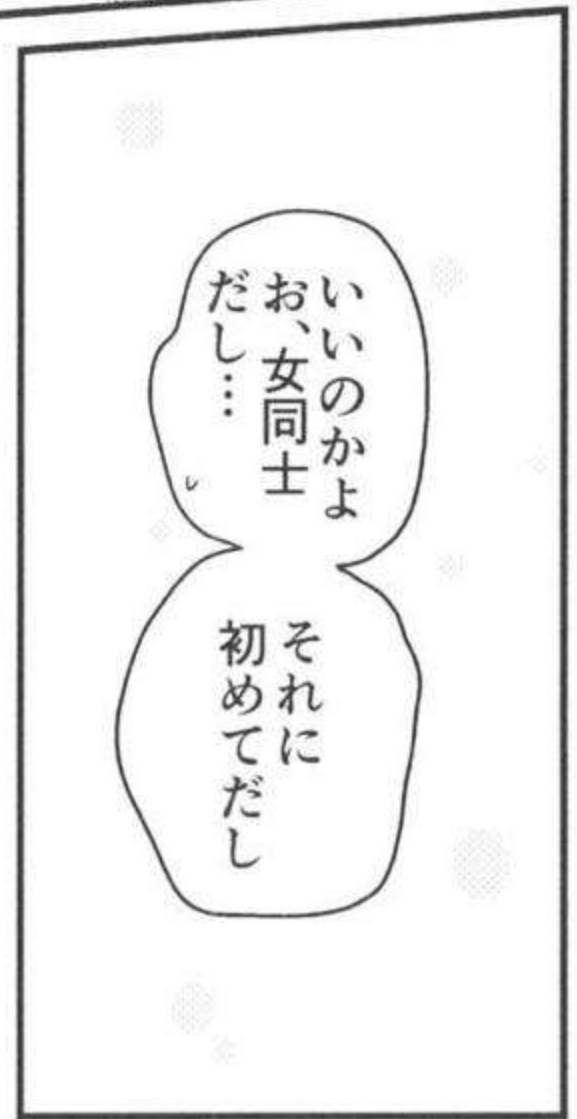 いいのかよ
お、女同士
だし…
それに
初めてだし